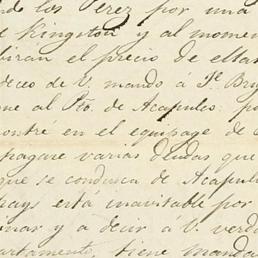 los Perez por una
Kingston y al momen
birán el precio de ellas
deceo de V. mando á Je. Br
al Pto. de Acapulco: po
contré en el equipage de
pague varias deudas que
que se condusca de Acapul
está inavitable por
mar y a decir á V. verd
artamente, tiene manda